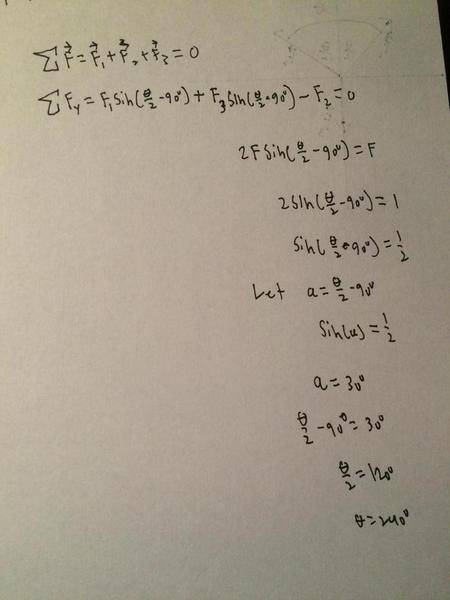 ∑F⃗ = F⃗₁ + F⃗₂ + F⃗₃ = 0
∑Fy = F₁sin(θ/2 - 90°) + F₃sin(θ/2 - 90°) - F₂ = 0
2Fsin(θ/2 - 90°) = F
2sin(θ/2 - 90°) = 1
sin(θ/2 - 90°) = 1/2
Let a = θ/2 - 90°
sin(a) = 1/2
a = 30°
θ/2 - 90° = 30°
θ/2 = 120°
θ = 240°